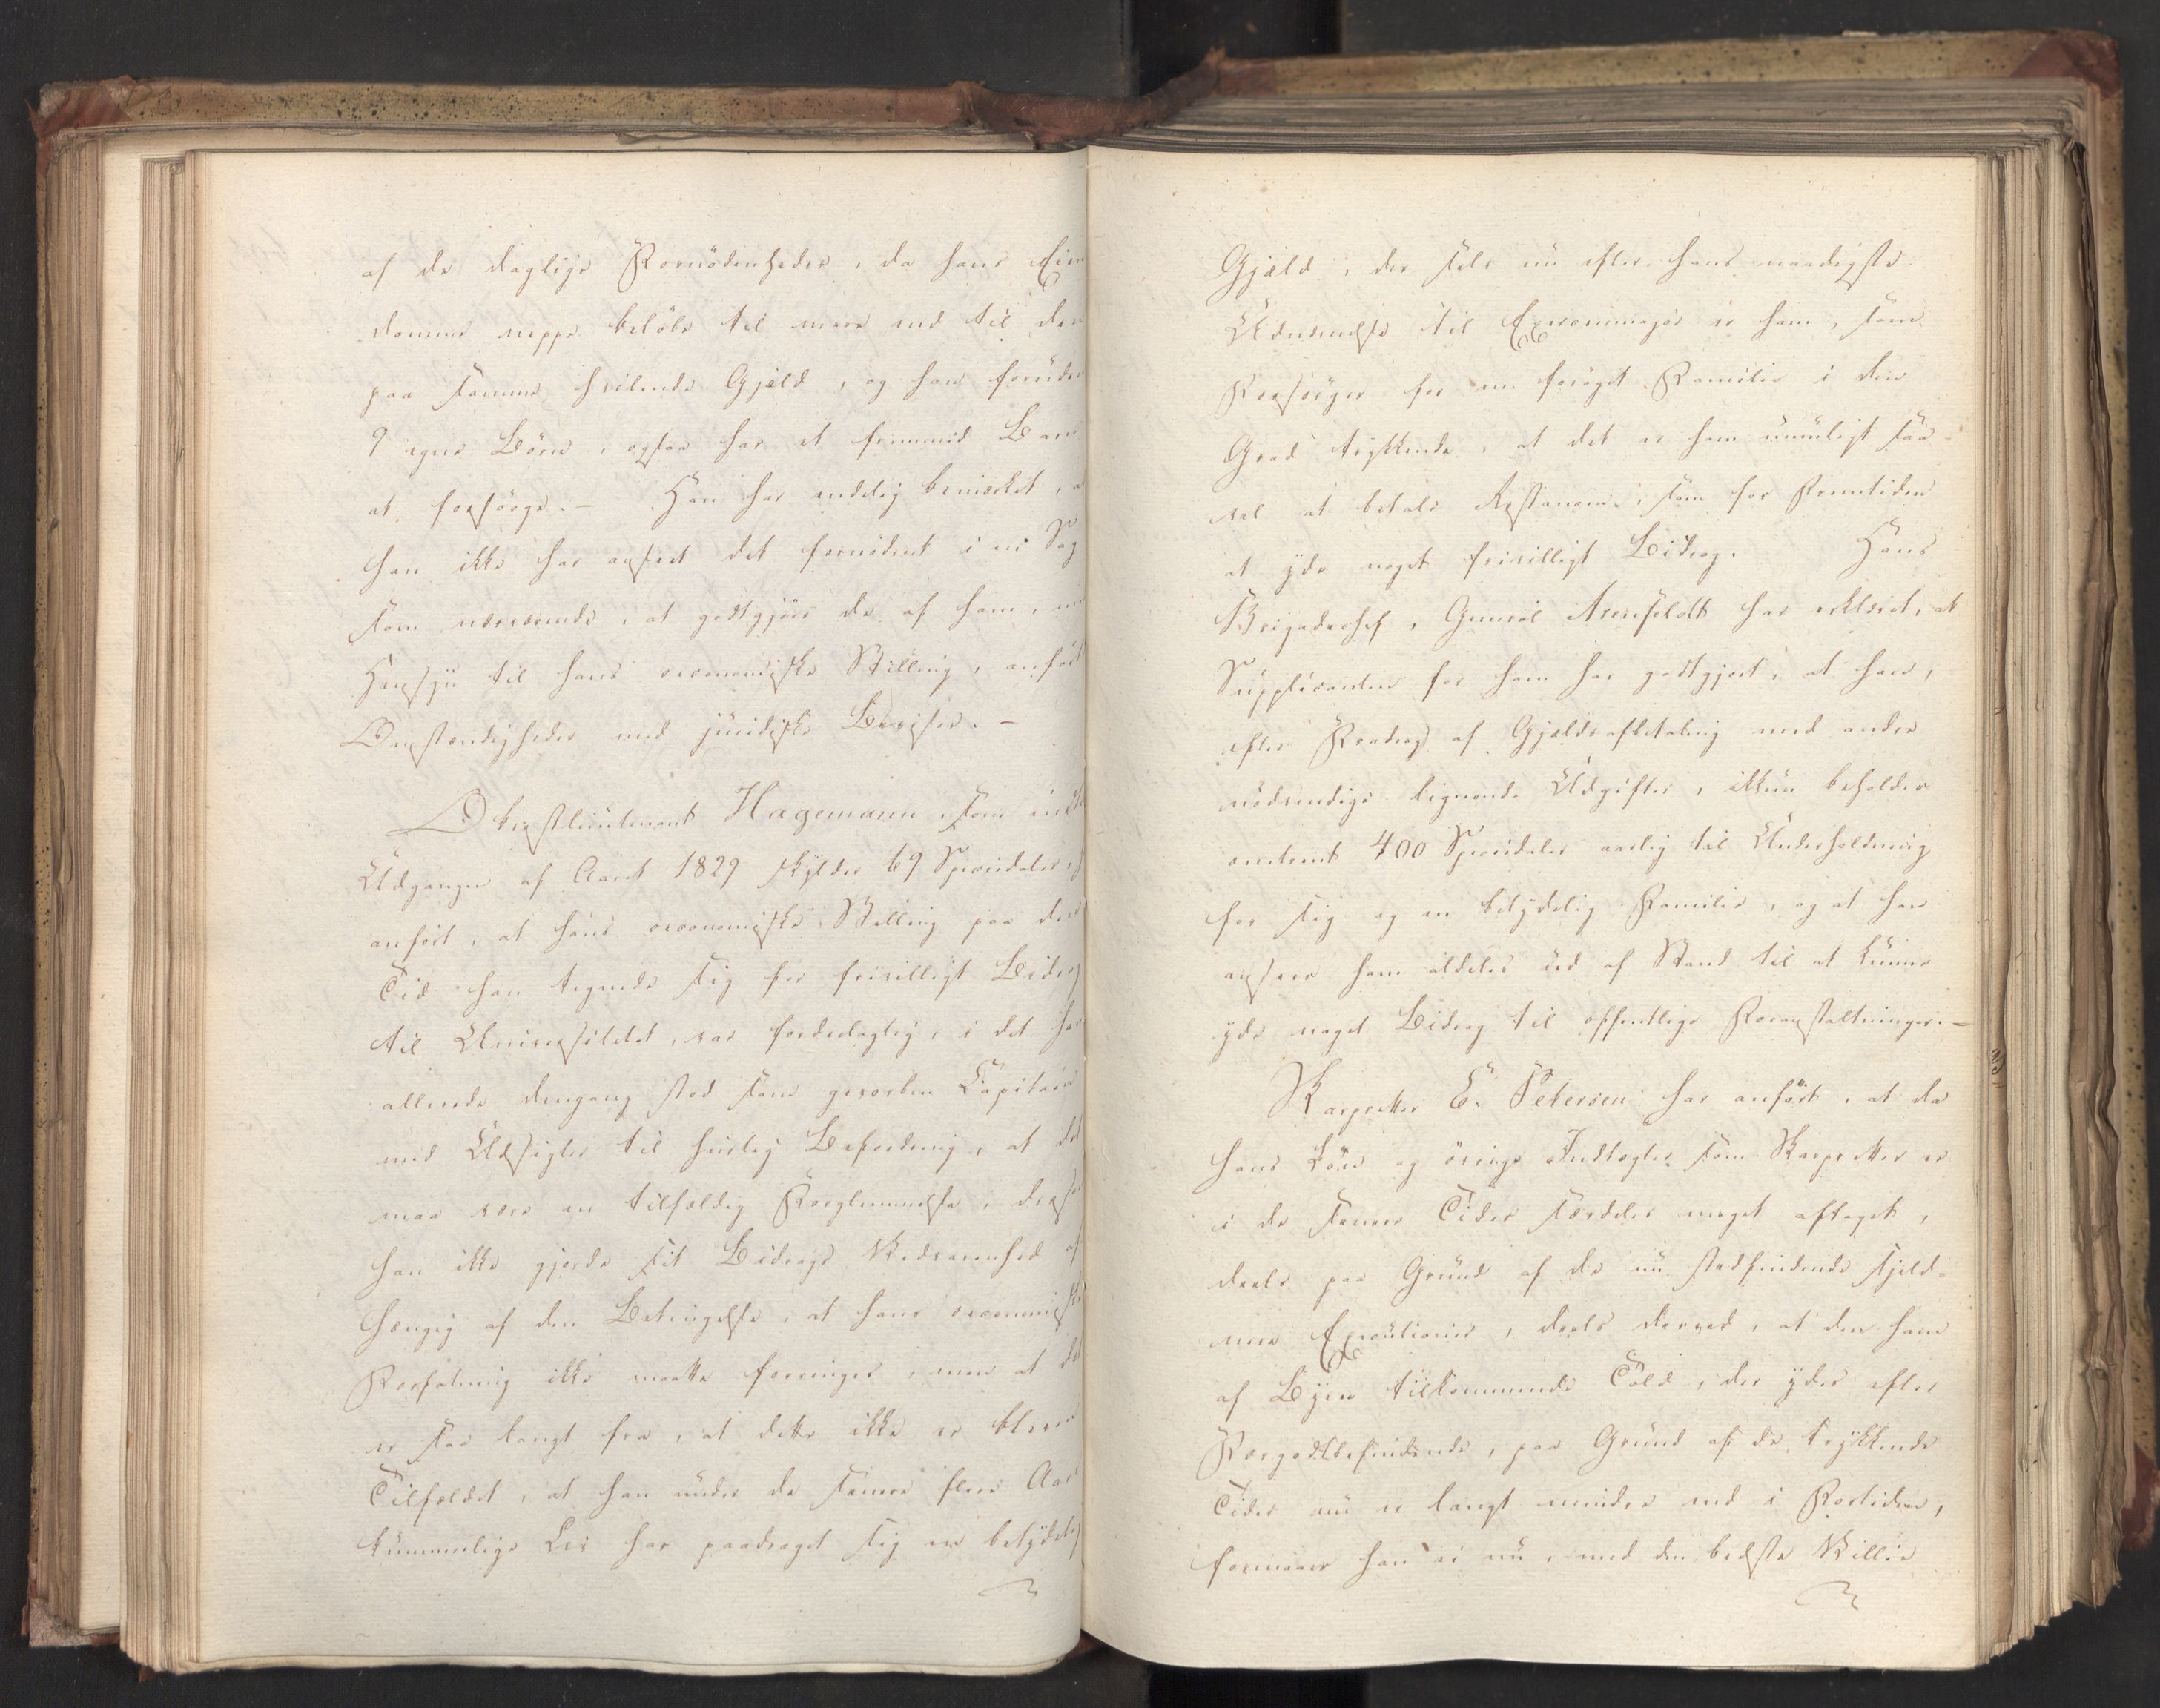 af de daglige Fornödenheder, da hans Eien
domme neppe belöbe til mere end til den
paa samme hvilende Gjæld, og han foruden
9 egne Börn, ogsaa har et fremmed Barn
at forsörge. — Han har endelig bemærket, a
han ikke har anseet det fornödent i en Sag
som nærværende, at godtgjöre de af ham, m
Hensyn til hans oeconomiske Stilling, anfört
Omstændigheder med juridiske Beviser. —
Oberstlieutenant Hagemann, som ved
Udgangen af Aaret 1829 skylder 69 Speciedaler, h
anfört, at hans oeconomiske Stilling paa den
Tid han tegnede sig for frivilligt Bidrag
til Universitetet, var fordeelagtig, i det han
allerede dengang stod som gevorben Capitain
med Udsigter til hurtig Befordring, at det
maa være en tilfældig Forglemmelse, derfor
han ikke gjorde sit Bidrags Vedvarenhed af
hængig af den Betingelse, at hans oeconomiske
Forfatning ikke maatte forringes, men at det
er saa langt fra, at dette ikke er bleven
Tilfældet, at han under de senere flere Aar
kummerlige Kaar har paadraget sig en betydelig
Gjæld, der selv nu efter hans naadigste
Udnævnelse til Generalmajor er ham, som
Forsörger for en foröget Familie i den
Grad trykkende, at det er ham umuligt saa-
vel at betale Restancen, som for Fremtiden
at yde noget frivilligt Bidrag. Hans
Brigadechef, General Arenfeldt har erklæret, at
Supplicanten for ham har godtgjort, at han,
efter Fradrag af Gjældsafbetaling med andre
nödvendige lignende Udgifter, ikkun beholder
omtrent 400 Speciedaler aarlig til Underholdning
for sig og en betydelig Familie, og at han
ansees ham aldeles ud af Stand til at kunne
yde noget Bidrag til offentlige Foranstaltninger. —
Skarpretter E. Petersen har anfört, at da
hans Lön og övrige Indtægter som Skarpretter er
i de senere Tider særdeles meget aftaget,
deels paa Grund af de nu stedfindende sjeld-
nere Executioner, deels derved, at den ham
af Byen tilkommende Told, der ydes efter
Forgodtbefindende, paa Grund af de trykkende
Tider nu er langt mindre end i Fortiden,
formaaer han ei nu, med den bedste Villie